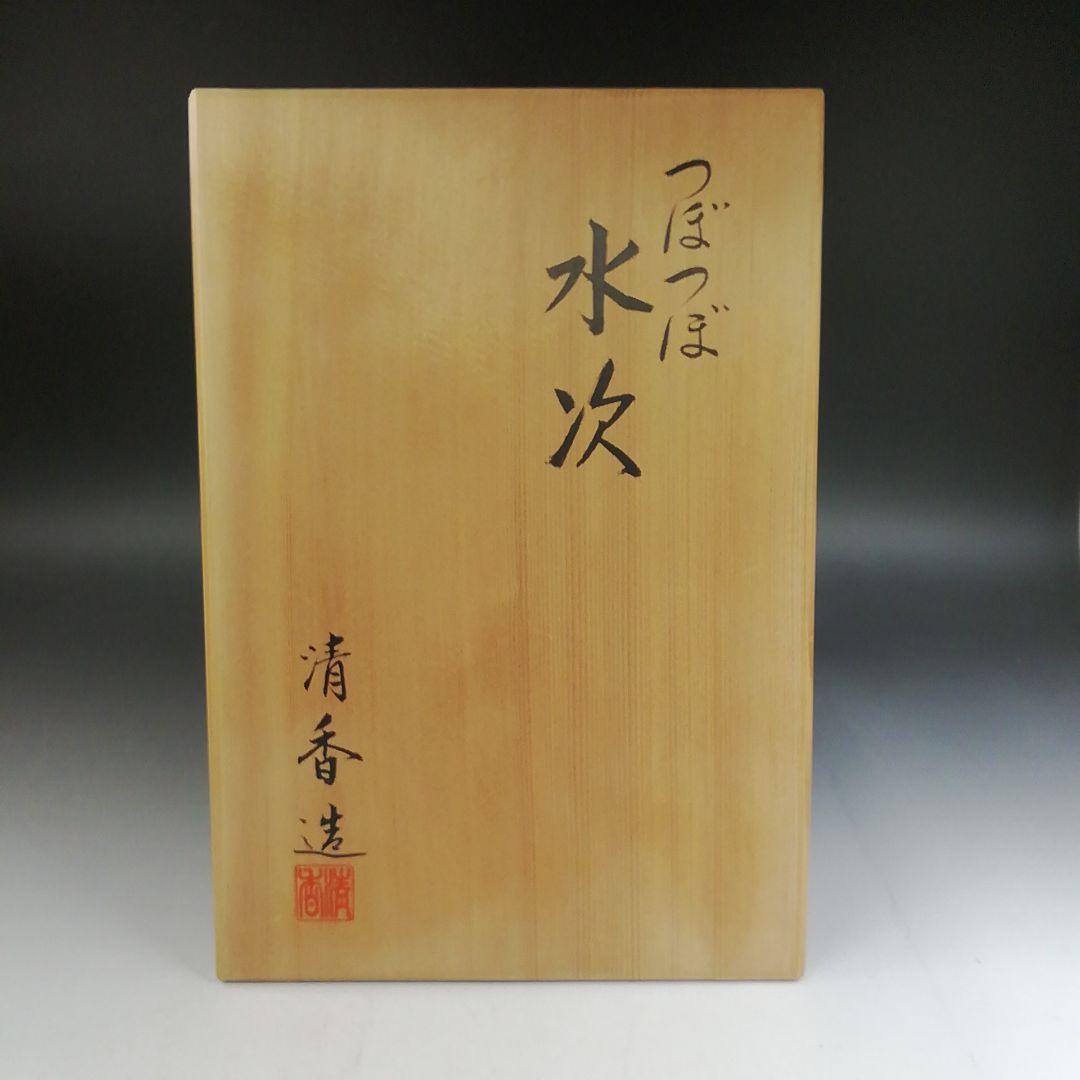 つぼつぼ
水次
清香造
清香